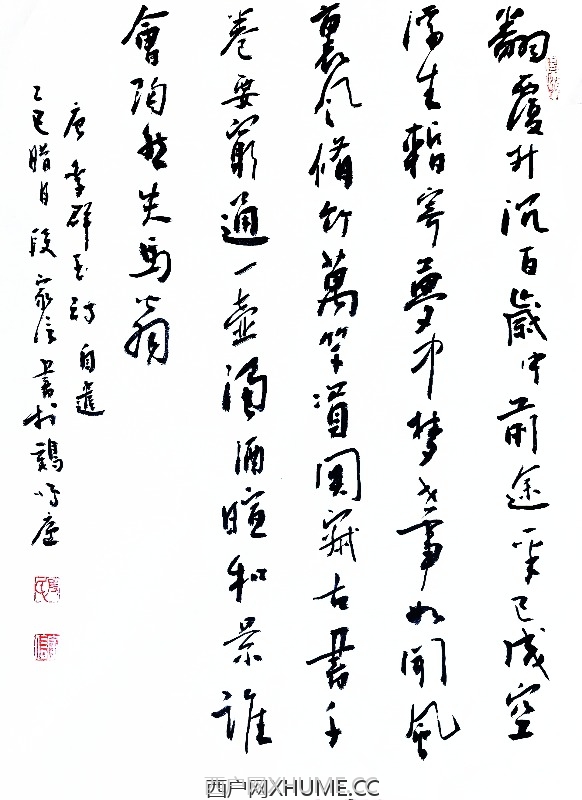 翻覆升沉百歲中前途一半已成空
浮生暫寄夢中梦世事如聞風
裏風脩竹萬竿資闃寂古書千
卷要窮通一壺濁酒暄和景誰
會陶然失馬翁
唐李群玉詩自遣
乙巳腊月段家信書於
西户网XHUME.CC